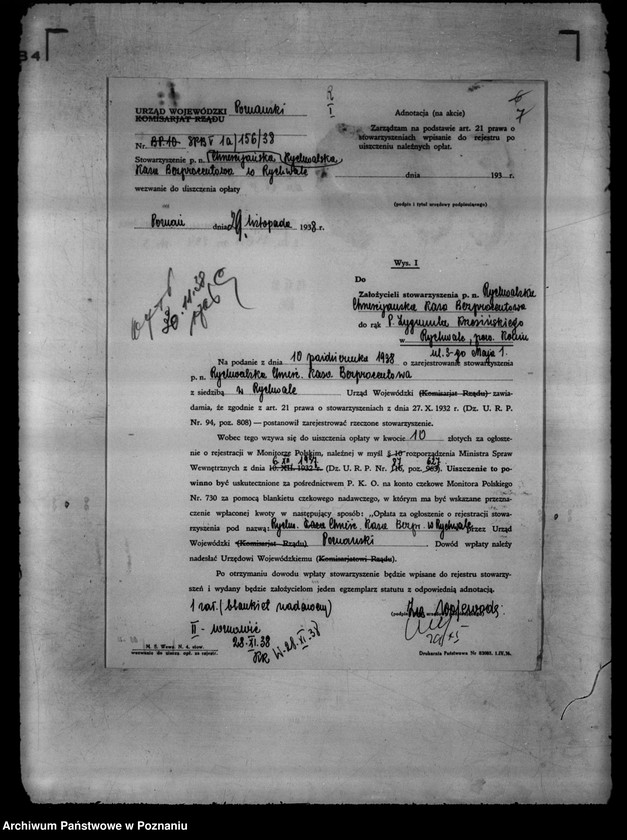 R
I
6
7
URZĄD WOJEWÓDZKI Poznański
KOMISARJAT RZĄDU
Nr. BP. 10. SPBV 1a/156/38
Stowarzyszenie p. n. Chrześcijańska Rychwalska
Kasa Bezprocentowa w Rychwale
wezwanie do uiszczenia opłaty
Poznań dnia 29 listopada 1938 r.
Adnotacja (na akcie)
Zarządzam na podstawie art. 21 prawa o
stowarzyszeniach wpisanie do rejestru po
uiszczeniu należnych opłat.
dnia 193 r.
(podpis i tytuł urzędowy podpisującego)
Wys. I
Do
Założycieli stowarzyszenia p. n. Rychwalska
Chrześcijańska Kasa Bezprocentowa
do rąk P. Zygmunta Krzesińskiego
w Rychwale, pow. Konin
ul. 3-go Maja 1.
30.11.38
Na podanie z dnia 10 października 1938 o zarejestrowanie stowarzyszenia
p. n. Rychwalska Chrześc. Kasa Bezprocentowa
z siedzibą w Rychwale Urząd Wojewódzki (Komisarjat Rządu) zawia-
damia, że zgodnie z art. 21 prawa o stowarzyszeniach z dnia 27. X. 1932 r. (Dz. U. R. P.
Nr. 94, poz. 808) — postanowił zarejestrować rzeczone stowarzyszenie.
Wobec tego wzywa się do uiszczenia opłaty w kwocie 10 złotych za ogłosze-
nie o rejestracji w Monitorze Polskim, należnej w myśl § 10 rozporządzenia Ministra Spraw
6. XII 1937 87 627
Wewnętrznych z dnia 10. XII. 1932 r. (Dz. U. R. P. Nr. 116, poz. 963). Uiszczenie to po-
winno być uskutecznione za pośrednictwem P. K. O. na konto czekowe Monitora Polskiego
Nr. 730 za pomocą blankietu czekowego nadawczego, w którym ma być wskazane przezna-
czenie wpłaconej kwoty w następujący sposób: „Opłata za ogłoszenie o rejestracji stowa-
rzyszenia pod nazwą: Rychw. Chrześc. Kasa Bezpr. w Rychwale przez Urząd
Wojewódzki (Komisarjat Rządu) Poznański. Dowód wpłaty należy
nadesłać Urzędowi Wojewódzkiemu (Komisarjatowi Rządu).
Po otrzymaniu dowodu wpłaty stowarzyszenie będzie wpisane do rejestru stowarzy-
szeń i wydany będzie założycielom jeden egzemplarz statutu z odpowiednią adnotacją.
1 zał. (blankiet nadawczy)
Za Wojewodę:
II - wznowić
28.XI.38
W. 28.XI 38
M. S. Wewn. N. 4. stow.
wezwanie do uiszcz. opł. za rejestr.
Drukarnia Państwowa Nr 63081. 1.IX.36.
Archiwum Państwowe w Poznaniu